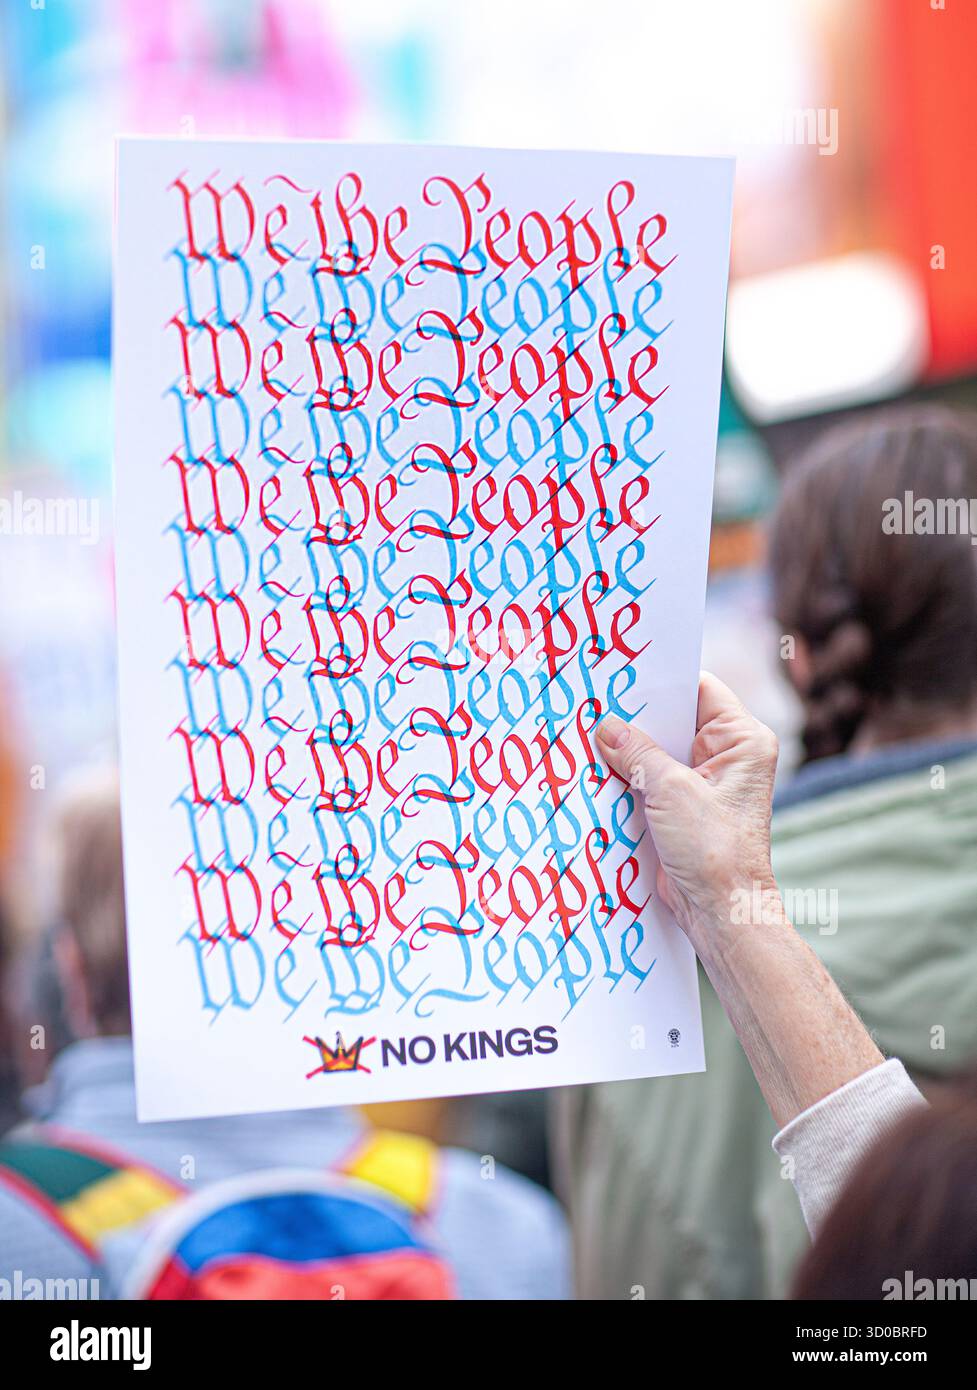 We the People
We the People
We the People
We the People
We the People
We the People
We the People
We the People
We the People
We the People
We the People
We the People
NO KINGS
alamy
Image ID: 3D0BRFD
www.alamy.com